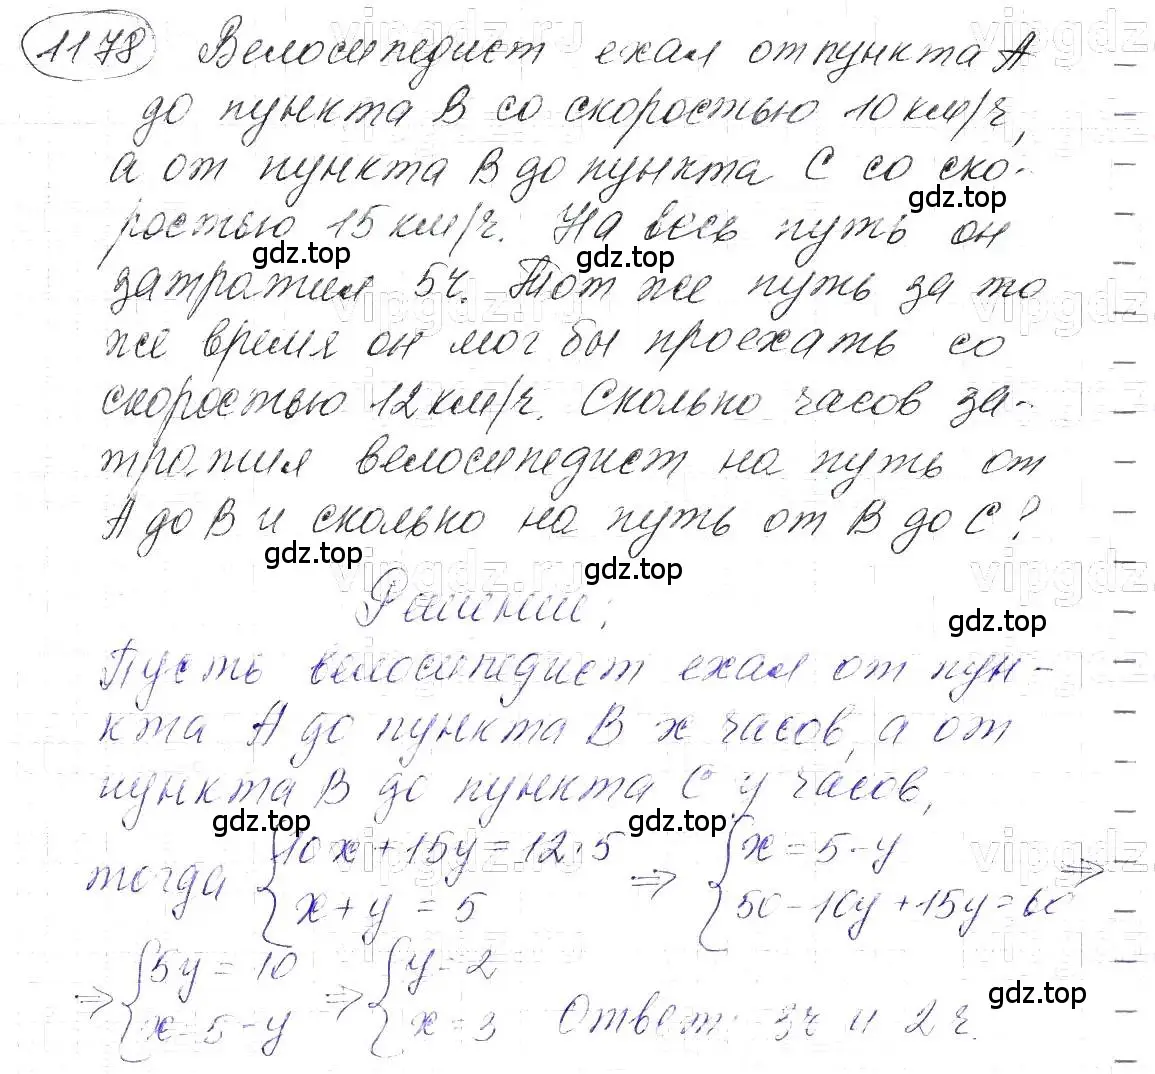 1178 Велосипедист ехал от пункта А
до пункта В со скоростью 10 км/ч,
а от пункта В до пункта С со ско-
ростью 15 км/ч. На весь путь он
затратил 5ч. Тот же путь за то
же время он мог бы проехать со
скоростью 12 км/ч. Сколько часов за-
тратил велосипедист на путь от
А до В и сколько на путь от В до С?
Решение:
Пусть велосипедист ехал от пун-
кта А до пункта В x часов, а от
пункта В до пункта С y часов,
тогда {10x+15y=12·5 ⇒ {x=5-y ⇒
{x+y=5 {50-10y+15y=60
⇒ {5y=10 ⇒ {y=2
{x=5-y {x=3 Ответ: 3ч и 2ч.
gdz.top
gdz.top
gdz.top
gdz.top
gdz.top
gdz.top
gdz.top
gdz.top
gdz.top
vipgdz.ru